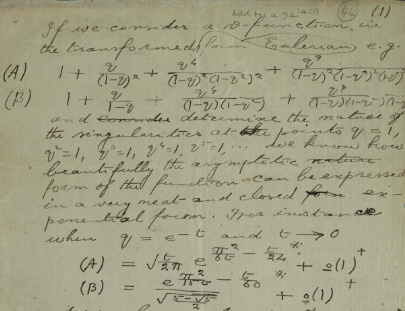 (1)
If we consider a ϑ-function in
the transformed form Eulerian e.g.
(A) 1 + q/(1-q)² + q⁴/((1-q)²(1-q²)²) + q⁹/((1-q)²(1-q²)²(1-q³)²)
(B) 1 + q/(1-q) + q⁴/((1-q)(1-q²)) + q⁹/((1-q)(1-q²)(1-q
and consider determine the nature of
the singularities at the points q = 1,
q² = 1, q³ = 1, q⁴ = 1, q⁵ = 1, ... we know how
beautifully the asymptotic nature
form of the function can be expressed
in a very neat and closed form ex-
ponential form. For instance
when q = e^{-t} and t → 0
(A) = √(t/2π) e^{π²/6t - t/24} + o(1)
(B) = e^{π²/15t - t/60} / √((5-√5)/2) + o(1)